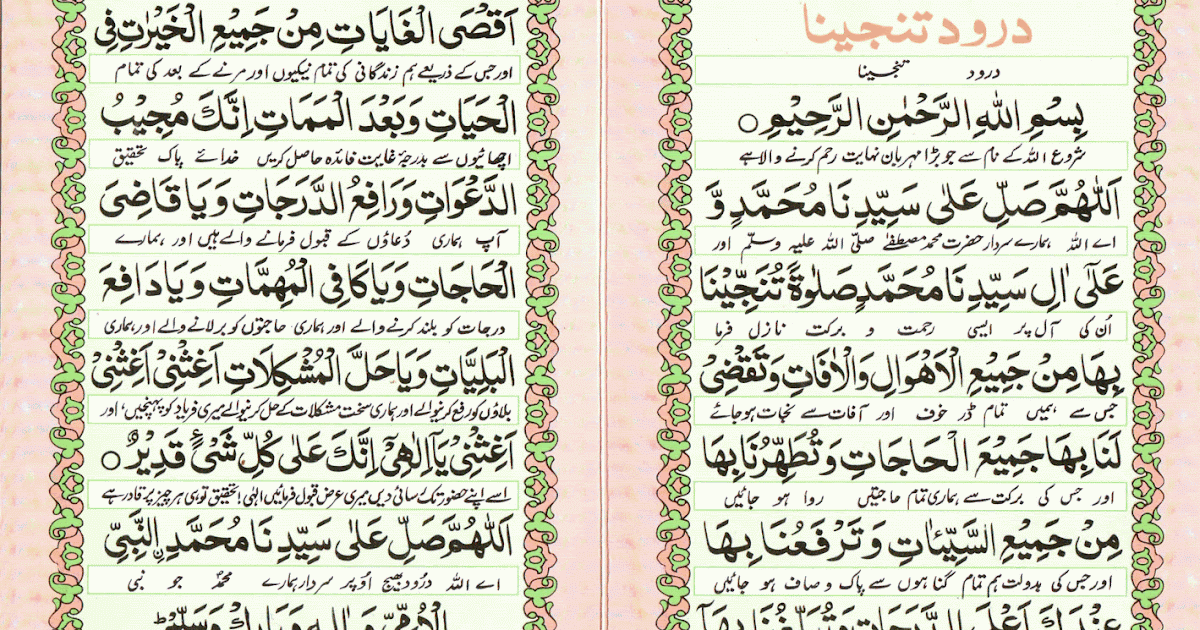 درود تنجینا
درود تنجینا
بِسْمِ اللهِ الرَّحْمٰنِ الرَّحِيْمِ ○
شروع اللہ کے نام سے جو بڑا مہربان نہایت رحم کرنے والا ہے
اَللّٰهُمَّ صَلِّ عَلٰى سَيِّدِنَا مُحَمَّدٍ وَّ
اے اللہ ہمارے سردار حضرت محمد مصطفےٰ صلّی اللہ علیہ وسلّم اور
عَلٰٓى اٰلِ سَيِّدِنَا مُحَمَّدٍ صَلٰوةً تُنَجِّيْنَا
اُن کی آل پر ایسی رحمت و برکت نازل فرما
بِهَا مِنْ جَمِيْعِ الْاَهْوَالِ وَالْاٰفَاتِ وَتَقْضِىْ
جس سے ہمیں تمام ڈر خوف اور آفات سے نجات ہو جائے
لَنَا بِهَا جَمِيْعَ الْحَاجَاتِ وَتُطَهِّرُنَا بِهَا
اور جس کی برکت سے ہماری تمام حاجتیں روا ہو جائیں
مِنْ جَمِيْعِ السَّيِّئَاتِ وَتَرْفَعُنَا بِهَا
اور جس کی بدولت ہم تمام گناہوں سے پاک و صاف ہو جائیں
عِنْدَكَ اَعْلَى الدَّرَجَاتِ وَتُبَلِّغُنَا بِهَآ
اَقْصَى الْغَايَاتِ مِنْ جَمِيْعِ الْخَيْرٰتِ فِى
اور جس کے ذریعے ہم زندگانی کی تمام نیکیوں اور مرنے کے بعد کی تمام
الْحَيَاتِ وَبَعْدَ الْمَمَاتِ اِنَّكَ مُجِيْبُ
اچھائیوں سے بدرجۂ غایت فائدہ حاصل کریں خدائے پاک تحقیق
الدَّعْوَاتِ وَرَافِعُ الدَّرَجَاتِ وَيَا قَاضِىَ
آپ ہماری دُعاؤں کے قبول فرمانے والے ہیں اور ہمارے
الْحَاجَاتِ وَيَا كَافِى الْمُهِمَّاتِ وَيَا دَافِعَ
درجات کو بلند کرنے والے اور ہماری حاجتوں کو بر لانے والے اور ہماری
الْبَلِيَّاتِ وَيَا حَلَّ الْمُشْكِلَاتِ اَغِثْنِىْ اَغِثْنِىْ
بلاؤں کو رفع کرنیوالے اور ہماری سخت مشکلات کے حل کرنیوالے میری فریاد کو پہنچیں، اور
اَغِثْنِىْ يَآ اِلٰهِىْ اِنَّكَ عَلٰى كُلِّ شَىْءٍ قَدِيْرٌ ○
اسے اپنے حضور تک رسائی دیں میری عرض قبول فرمائیں الہٰی! تحقیق تو ہی ہر چیز پر قادر ہے
اَللّٰهُمَّ صَلِّ عَلٰى سَيِّدِنَا مُحَمَّدِ نِ النَّبِىِّ
اے اللہ درُود بھیج اُوپر سردار ہمارے محمدؐ جو نبی
الْاُمِّىِّ وَاٰلِهٖ وَبَارِكْ وَسَلِّمْ ط